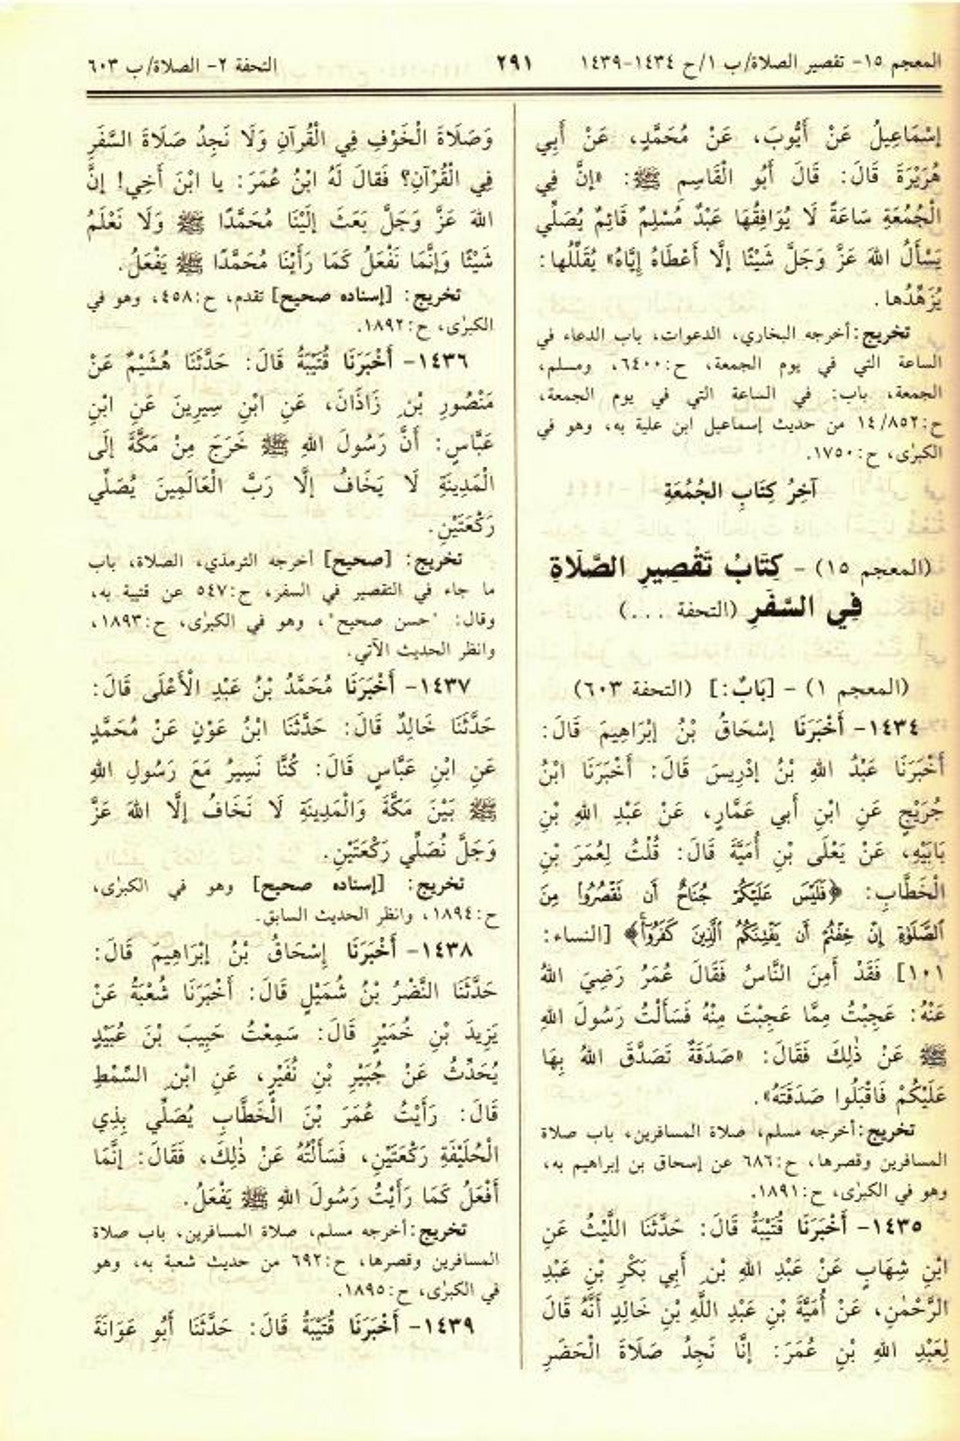 المعجم ١٥- تقصير الصلاة/ ب ١/ ح ١٤٣٤-١٤٣٩ ٢٩١ التحفة ٢- الصلاة/ ب ٦٠٣
إِسْمَاعِيلُ عَنْ أَيُّوبَ، عَنْ مُحَمَّدٍ، عَنْ أَبِي
هُرَيْرَةَ قَالَ: قَالَ أَبُو الْقَاسِمِ ﷺ: «إِنَّ فِي
الْجُمُعَةِ سَاعَةً لَا يُوَافِقُهَا عَبْدٌ مُسْلِمٌ قَائِمٌ يُصَلِّي
يَسْأَلُ اللهَ عَزَّ وَجَلَّ شَيْئًا إِلَّا أَعْطَاهُ إِيَّاهُ» يُقَلِّلُها:
يُزَهِّدُها.
تخريج: أخرجه البخاري، الدعوات، باب الدعاء في
الساعة التي في يوم الجمعة، ح:٦٤٠٠، ومسلم،
الجمعة، باب: في الساعة التي في يوم الجمعة،
ح:١٤/٨٥٢ من حديث إسماعيل ابن علية به، وهو في
الكبرٰى، ح:١٧٥٠.
آخِرُ كِتَابِ الجُمُعَةِ
(المعجم ١٥) - كِتَابُ تَقْصِيرِ الصَّلَاةِ
فِي السَّفَرِ (التحفة ...)
(المعجم ١) - [بَابٌ:] (التحفة ٦٠٣)
١٤٣٤- أَخْبَرَنَا إِسْحَاقُ بْنُ إِبْرَاهِيمَ قَالَ:
أَخْبَرَنَا عَبْدُ اللهِ بْنُ إِدْرِيسَ قَالَ: أَخْبَرَنَا ابْنُ
جُرَيْجٍ عَنِ ابْنِ أَبِي عَمَّارٍ، عَنْ عَبْدِ اللهِ بْنِ
بَابَيْهِ، عَنْ يَعْلَى بْنِ أُمَيَّةَ قَالَ: قُلْتُ لِعُمَرَ بْنِ
الْخَطَّابِ: ﴿فَلَيْسَ عَلَيْكُمْ جُنَاحٌ أَن نَقْصُرُوا۟ مِنَ
ٱلصَّلَوٰةِ إِنْ خِفْتُمْ أَن يَفْتِنَكُمُ ٱلَّذِينَ كَفَرُوٓا۟﴾ [النساء:
١٠١] فَقَدْ أَمِنَ النَّاسُ فَقَالَ عُمَرُ رَضِيَ اللهُ
عَنْهُ: عَجِبْتُ مِمَّا عَجِبْتَ مِنْهُ فَسَأَلْتُ رَسُولَ اللهِ
ﷺ عَنْ ذٰلِكَ فَقَالَ: «صَدَقَةٌ تَصَدَّقَ اللهُ بِهَا
عَلَيْكُمْ فَاقْبَلُوا صَدَقَتَهُ».
تخريج: أخرجه مسلم، صلاة المسافرين، باب صلاة
المسافرين وقصرها، ح:٦٨٦ عن إسحاق بن إبراهيم به،
وهو في الكبرٰى، ح:١٨٩١.
١٤٣٥- أَخْبَرَنَا قُتَيْبَةُ قَالَ: حَدَّثَنَا اللَّيْثُ عَنِ
ابْنِ شِهَابٍ عَنْ عَبْدِ اللهِ بْنِ أَبِي بَكْرِ بْنِ عَبْدِ
الرَّحْمٰنِ، عَنْ أُمَيَّةَ بْنِ عَبْدِ اللَّهِ بْنِ خَالِدٍ أَنَّهُ قَالَ
لِعَبْدِ اللهِ بْنِ عُمَرَ: إِنَّا نَجِدُ صَلَاةَ الْحَضَرِ
وَصَلَاةَ الْخَوْفِ فِي الْقُرآنِ وَلَا نَجِدُ صَلَاةَ السَّفَرِ
فِي الْقُرْآنِ؟ فَقالَ لَهُ ابْنُ عُمَرَ: يا ابْنَ أَخِي! إِنَّ
اللهَ عَزَّ وَجَلَّ بَعَثَ إِلَيْنَا مُحَمَّدًا ﷺ وَلَا نَعْلَمُ
شَيْئًا وَإِنَّمَا نَفْعَلُ كَمَا رَأَيْنَا مُحَمَّدًا ﷺ يَفْعَلُ.
تخريج: [إسناده صحيح] تقدم، ح:٤٥٨، وهو في
الكبرٰى، ح:١٨٩٢.
١٤٣٦- أَخْبَرَنَا قُتَيْبَةُ قَالَ: حَدَّثَنَا هُشَيْمٌ عَنْ
مَنْصُورِ بْنِ زَاذَانَ، عَنِ ابْنِ سِيرِينَ عَنِ ابْنِ
عَبَّاسٍ: أَنَّ رَسُولَ اللهِ ﷺ خَرَجَ مِنْ مَكَّةَ إِلَى
الْمَدِينَةِ لَا يَخَافُ إِلَّا رَبَّ الْعَالَمِينَ يُصَلِّي
رَكْعَتَيْنِ.
تخريج: [صحيح] أخرجه الترمذي، الصلاة، باب
ما جاء في التقصير في السفر، ح:٥٤٧ عن قتيبة به،
وقال: "حسن صحيح"، وهو في الكبرٰى، ح:١٨٩٣،
وانظر الحديث الآتي.
١٤٣٧- أَخْبَرَنَا مُحَمَّدُ بْنُ عَبْدِ الْأَعْلَى قَالَ:
حَدَّثَنَا خَالِدٌ قَالَ: حَدَّثَنَا ابْنُ عَوْنٍ عَنْ مُحَمَّدٍ
عَنِ ابْنِ عَبَّاسٍ قَالَ: كُنَّا نَسِيرُ مَعَ رَسُولِ اللهِ
ﷺ بَيْنَ مَكَّةَ وَالْمَدِينَةِ لَا نَخَافُ إِلَّا اللهَ عَزَّ
وَجَلَّ نُصَلِّي رَكْعَتَيْنِ.
تخريج: [إسناده صحيح] وهو في الكبرٰى،
ح:١٨٩٤، وانظر الحديث السابق.
١٤٣٨- أَخْبَرَنَا إِسْحَاقُ بْنُ إِبْرَاهِيمَ قَالَ:
حَدَّثَنَا النَّضْرُ بْنُ شُمَيْلٍ قَالَ: أَخْبَرَنَا شُعْبَةُ عَنْ
يَزِيدَ بْنِ خُمَيْرٍ قَالَ: سَمِعْتُ حَبِيبَ بْنَ عُبَيْدٍ
يُحَدِّثُ عَنْ جُبَيْرِ بْنِ نُفَيْرٍ، عَنِ ابْنِ السِّمْطِ
قَالَ: رَأَيْتُ عُمَرَ بْنَ الْخَطَّابِ يُصَلِّي بِذِي
الْحُلَيْفَةِ رَكْعَتَيْنِ، فَسَأَلْتُهُ عَنْ ذٰلِكَ، فَقَالَ: إِنَّمَا
أَفْعَلُ كَمَا رَأَيْتُ رَسُولَ اللهِ ﷺ يَفْعَلُ.
تخريج: أخرجه مسلم، صلاة المسافرين، باب صلاة
المسافرين وقصرها، ح:٦٩٢ من حديث شعبة به، وهو
في الكبرٰى، ح:١٨٩٥.
١٤٣٩- أَخْبَرَنَا قُتَيْبَةُ قَالَ: حَدَّثَنَا أَبُو عَوَانَةَ